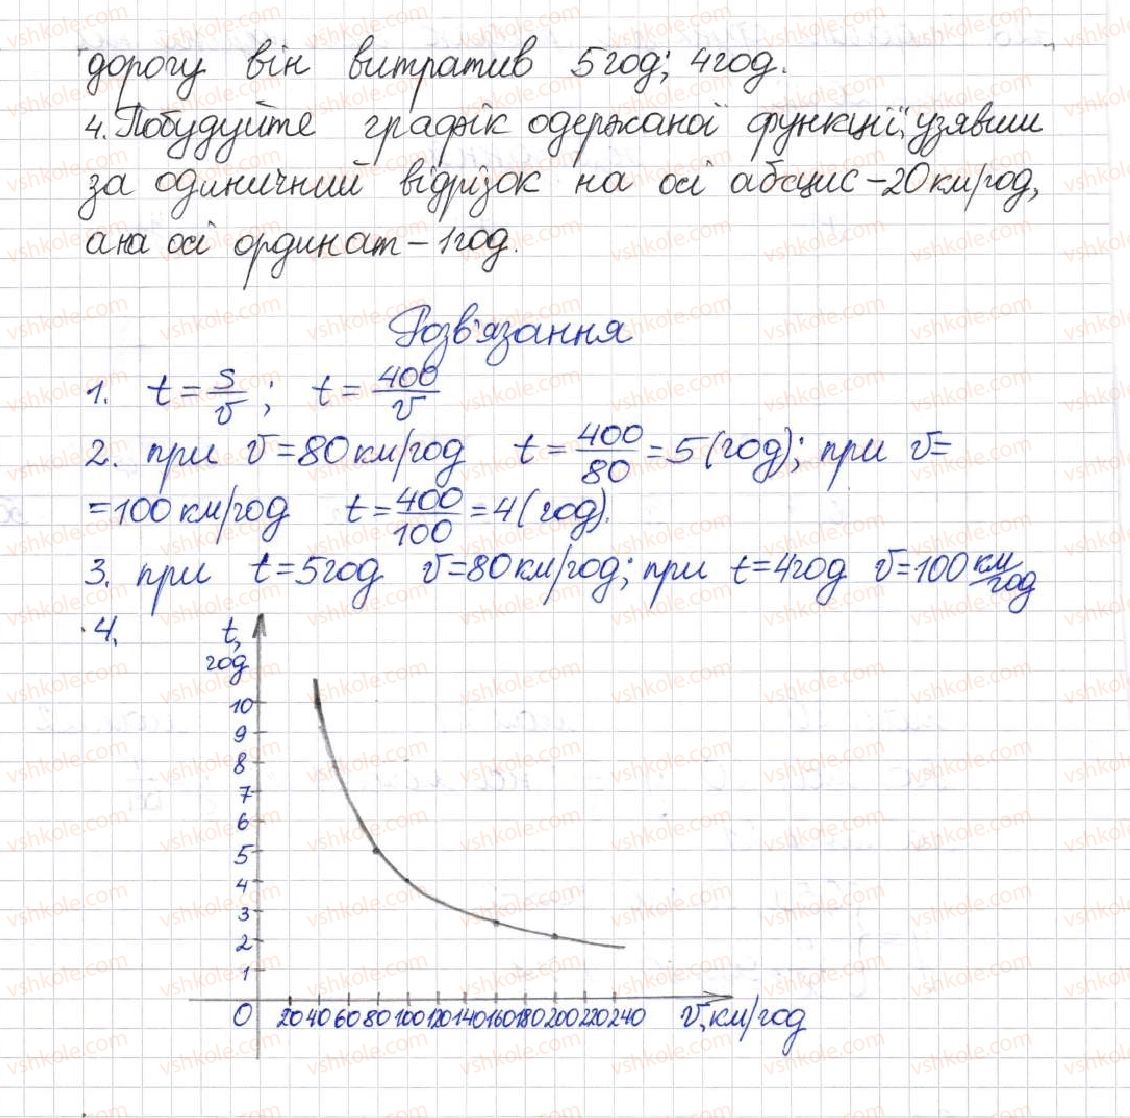 дорогу він витратив 5 год; 4 год.
4. Побудуйте графік одержаної функції, узявши
за одиничний відрізок на осі абсцис – 20 км/год,
а на осі ординат – 1 год.
Розв'язання
1. t = s/v ; t = 400/v
2. при v = 80 км/год t = 400/80 = 5 (год); при v =
= 100 км/год t = 400/100 = 4 (год).
3. при t = 5 год v = 80 км/год; при t = 4 год v = 100 км/год
4.
t, год
10
9
8
7
6
5
4
3
2
1
0 20 40 60 80 100 120 140 160 180 200 220 240 v, км/год
vshkole.com